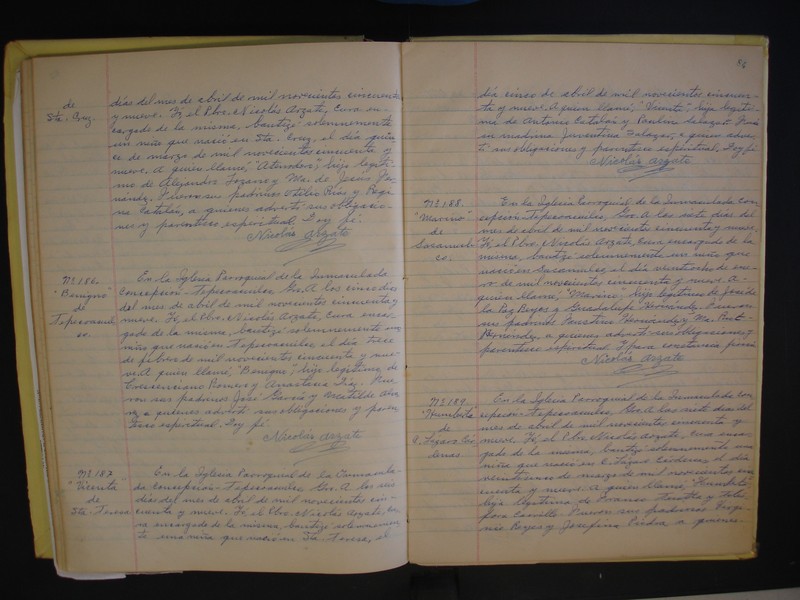 de
Sta. Cruz.
días del mes de abril de mil novecientos cincuenta
y nueve. Yó, el Pbro. Nicolás Arzate, Cura en-
cargado de la misma, bautizé solemnemente
un niño que nació en Sta. Cruz, el día quin
ce de marzo de mil novecientos cincuenta y
nueve. A quien llamé, hijo legíti-
mo de Alejandro Lozano y Ma. de Jesús
Fueron sus padrinos Otilio Ríos y
a quienes advertí sus obligacio-
nes y parentesco espiritual. Doy fé.
Nicolás Arzate
Nº 186.
"Benigno"
de
En la Iglesia Parroquial de la Inmaculada
Concepción Gro. A los cinco días
del mes de abril de mil novecientos cincuenta y
nueve. Yó, el Pbro. Nicolás Arzate, Cura encar-
gado de la misma, bautizé solemnemente un
niño que nació en el día trece
de febrero de mil novecientos cincuenta y nue-
ve. A quien llamé, "Benigno"; hijo legítimo de
Crescenciano Romero y Anastacia
ron sus padrinos José García y
a quienes advertí sus obligaciones y paren
tesco espiritual. Doy fé.
Nicolás Arzate
Nº 187
"Vicenta"
de
Sta. Teresa
En la Iglesia Parroquial de la Inmacula-
da Concepción Gro. A los seis
días del mes de abril de mil novecientos cin-
cuenta y nueve. Yó, el Pbro. Nicolás Arzate, Cu-
ra encargado de la misma, bautizé solemnemen
te una niña que nació en Sta. Teresa, el
86
día cinco de abril de mil novecientos cincuen-
ta y nueve. A quien llamé, "Vicenta"; hija legíti-
ma de Antonio Catalán y Paulina Salazar.
su madrina Juventina Salazar, a quien adver
tí sus obligaciones y parentesco espiritual. Doy fé
Nicolás Arzate
Nº 188.
"Marino"
de
En la Iglesia Parroquial de la Inmaculada Con
cepción Gro. A los siete días del
mes de abril de mil novecientos cincuenta y nueve.
Yó, el Pbro. Nicolás Arzate, Cura encargado de la
misma, bautizé solemnemente un niño que
nació en el día veintiocho de ene-
ro de mil novecientos cincuenta y nueve. A
quien llamé, "Marino"; hijo legítimo de José de
la Paz Reyes y Guadalupe Hernández. Fueron
sus padrinos Faustino Hernández y Ma.
Hernández, a quienes advertí sus obligaciones y
parentesco espiritual. Y para constancia firmé
Nicolás Arzate
Nº 189.
"Humberta"
de
L. Lázaro Cár
denas
En la Iglesia Parroquial de la Inmaculada Con
cepción Gro. A los siete días del
mes de abril de mil novecientos cincuenta y
nueve. Yó, el Pbro. Nicolás Arzate, Cura encar-
gado de la misma, bautizé solemnemente una
niña que nació en L. Lázaro Cárdenas, el día
de marzo de mil novecientos cin
cuenta y nueve. A quien llamé, "Humberta";
hija legítima de
Carrillo. Fueron sus padrinos
Reyes y Josefina Piedra, a quienes